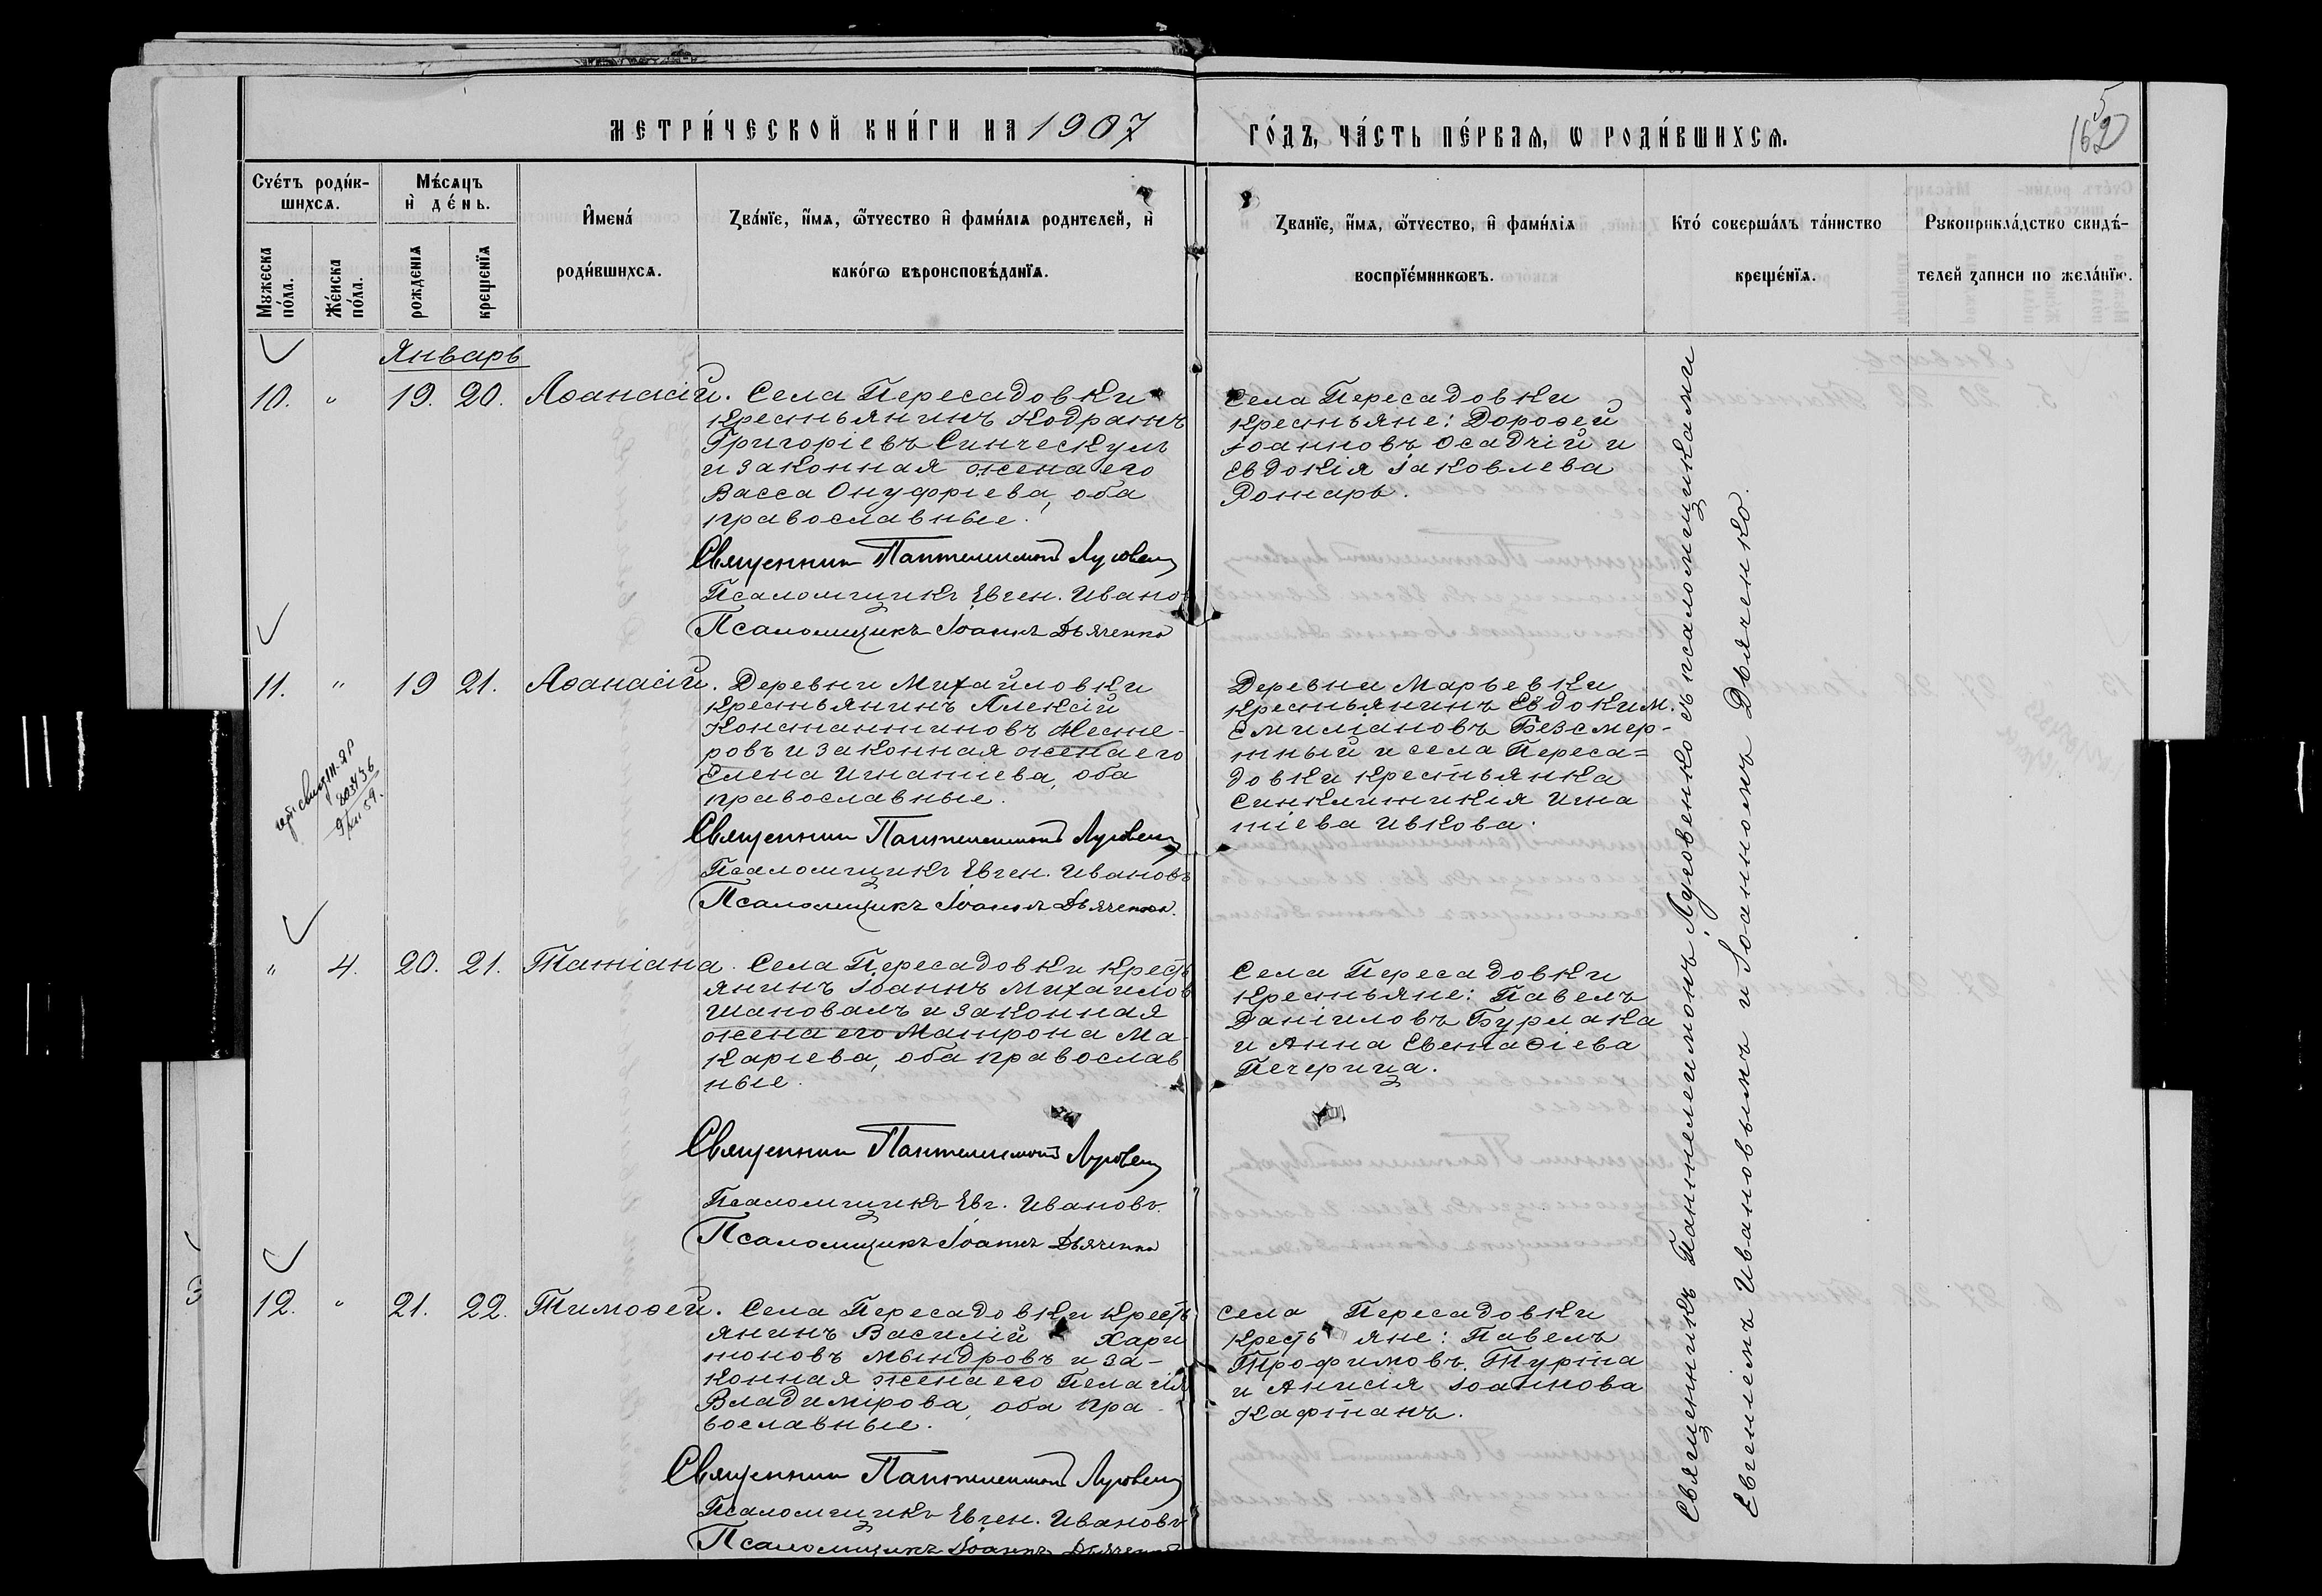 МЕТРИ́ЧЕСКОЙ КНИ́ГИ НА 1907
ГО́ДЪ, ЧА́СТЬ ПЕ́РВАЯ, Ѡ РОДИ́ВШИХСЯ.
5
162
Сче́тъ роди́в-
шихсѧ.
Мѣ́сѧцъ
и҆ де́нь.
И҆мена́
роди́вшихсѧ.
Зва́нїе, и҆́мѧ, ѻ҆́тчество и҆ фами́лїѧ родителей, и҆
како́гѡ вѣроисповѣ́данїѧ.
Зва́нїе, и҆́мѧ, ѻ҆́тчество, и҆ фами́лїѧ
воспрїе́мникѡвъ.
Кто́ соверша́лъ та́инство
креще́нїѧ.
Рꙋкоприкла́дство свидѣ́-
телей записи по жела́нїю.
Мꙋжеска
по́ла.
Же́нска
по́ла.
рожденїѧ
крещенїѧ
Январь
10. " 19. 20. Аѳанасій. Села Пересадовки
крестьянинъ Кодратъ
Григоріевъ Синческулъ
и законная жена его
Васса Онуфріева, оба
православные.
Священникъ Пантелеимонъ Луговенко
Псаломщикъ Евген. Ивановъ
Псаломщикъ Іоаннъ Дьяченко
Села Пересадовки
крестьяне: Дороѳей
Іоанновъ Осадчій и
Евдокія Іаковлева
Ротарь.
11. " 19 21. Аѳанасій. Деревни Михайловки
крестьянинъ Алексій
Константиновъ Несте-
ровъ и законная жена его
Елена Игнатіева, оба
православные.
Священникъ Пантелеимонъ Луговенко
Псаломщикъ Евген. Ивановъ
Псаломщикъ Іоаннъ Дьяченко.
Деревни Марьевки
крестьянинъ Евдоким.
Емиліановъ Безсмер-
тный и села Переса-
довки крестьянка
Синклитикія Игна
тіева Ивкова.
" 4. 20. 21. Татіана. Села Пересадовки кресть
янинъ Іоаннъ Михаилов
Шаповалъ и законная
жена его Матрона Ма-
каріева, оба православ
ные.
Священникъ Пантелеимонъ Луговенко
Псаломщикъ Евг. Ивановъ.
Псаломщикъ Іоаннъ Дьяченко
Села Пересадовки
крестьяне: Павелъ
Даніиловъ Бурлака
и Анна Евстаѳіева
Печерица.
12. " 21. 22. Тимоѳей. Села Пересадовки кресть
янинъ Василій Хари
тоновъ Мындровъ и за-
конная жена его Пелагія
Владимірова, оба пра-
вославные.
Священникъ Пантелеимонъ Луговенко
Псаломщикъ Евген. Ивановъ
Псаломщикъ Іоаннъ Дьяченко
села Пересадовки
кресть яне: Павелъ
Трофимовъ Турта
и Анисія Іоаннова
Кафтанъ.
Священникъ Пантелеимонъ Луговенко съ псаломщиками
Евгеніемъ Ивановымъ и Іоанномъ Дьяченко.